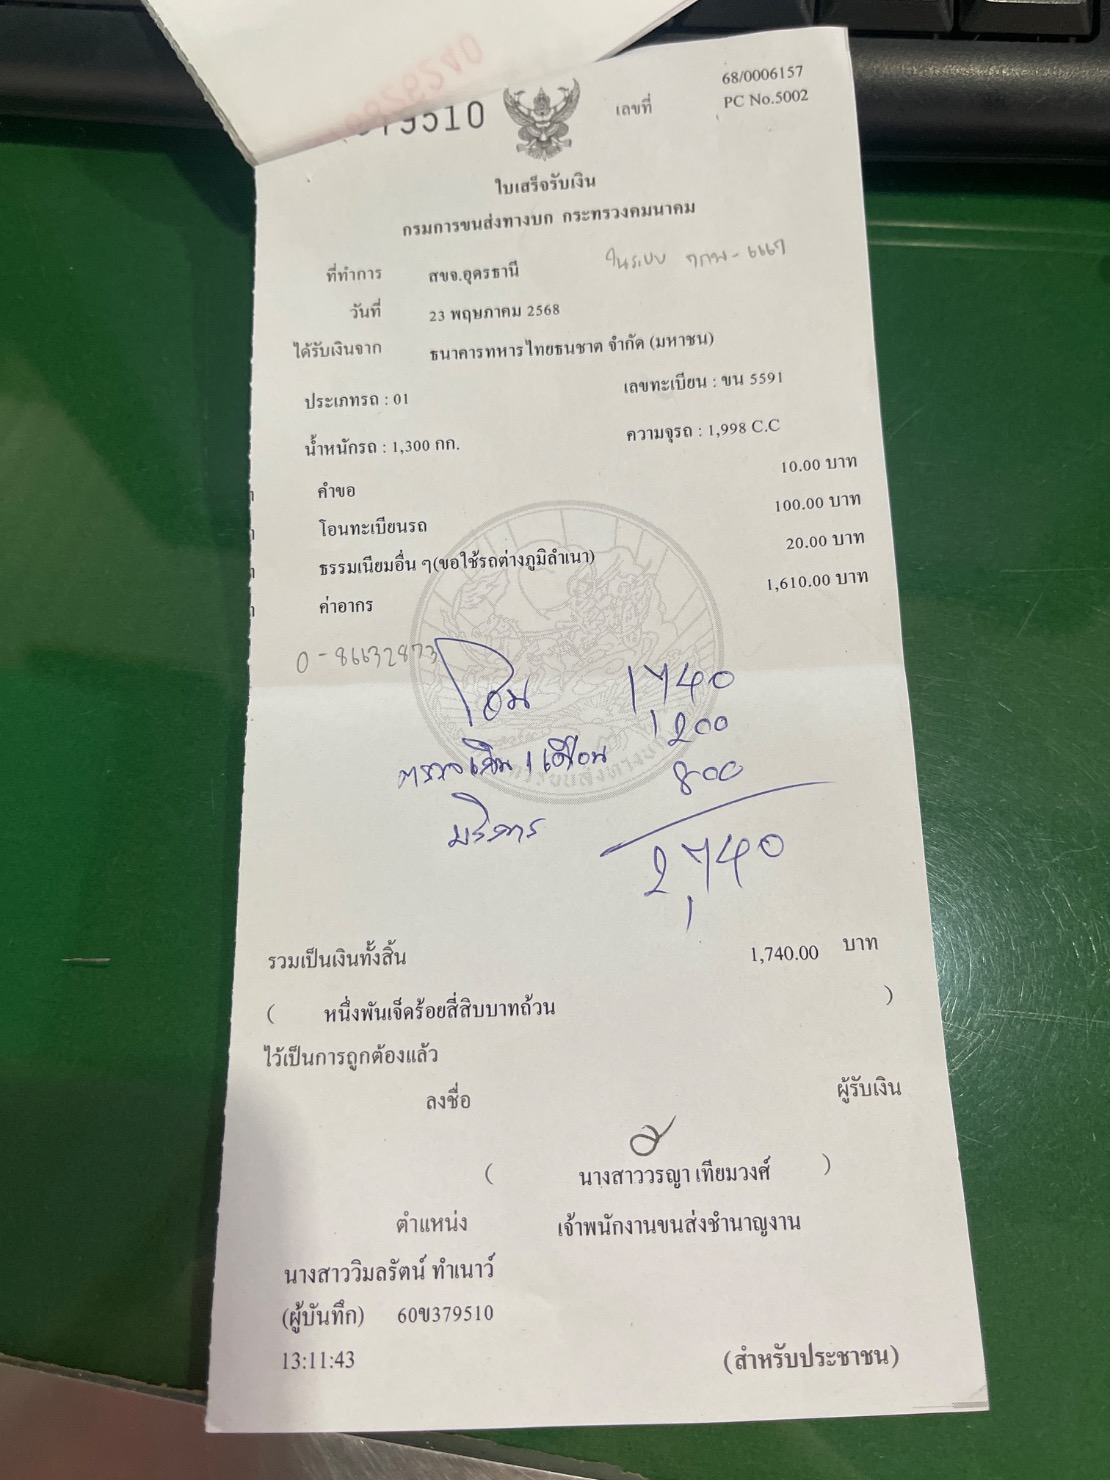 79510
เลขที่ 68/0006157
PC No.5002
ใบเสร็จรับเงิน
กรมการขนส่งทางบก กระทรวงคมนาคม
ที่ทำการ สขจ.อุดรธานี
ในระบบ
วันที่ 23 พฤษภาคม 2568
ได้รับเงินจาก ธนาคารทหารไทยธนชาต จำกัด (มหาชน)
ประเภทรถ : 01 เลขทะเบียน : ขน 5591
น้ำหนักรถ : 1,300 กก. ความจุรถ : 1,998 C.C
คำขอ 10.00 บาท
โอนทะเบียนรถ 100.00 บาท
ธรรมเนียมอื่น ๆ(ขอใช้รถต่างภูมิลำเนา) 20.00 บาท
ค่าอากร 1,610.00 บาท
0-86632873
โอน 1,740
1 เดือน 200
บริการ 800
2,740
รวมเป็นเงินทั้งสิ้น 1,740.00 บาท
( หนึ่งพันเจ็ดร้อยสี่สิบบาทถ้วน )
ไว้เป็นการถูกต้องแล้ว
ลงชื่อ ผู้รับเงิน
( นางสาววรญา เทียมวงศ์ )
ตำแหน่ง เจ้าพนักงานขนส่งชำนาญงาน
นางสาววิมลรัตน์ ทำเนาว์
(ผู้บันทึก) 60ข379510
13:11:43 (สำหรับประชาชน)